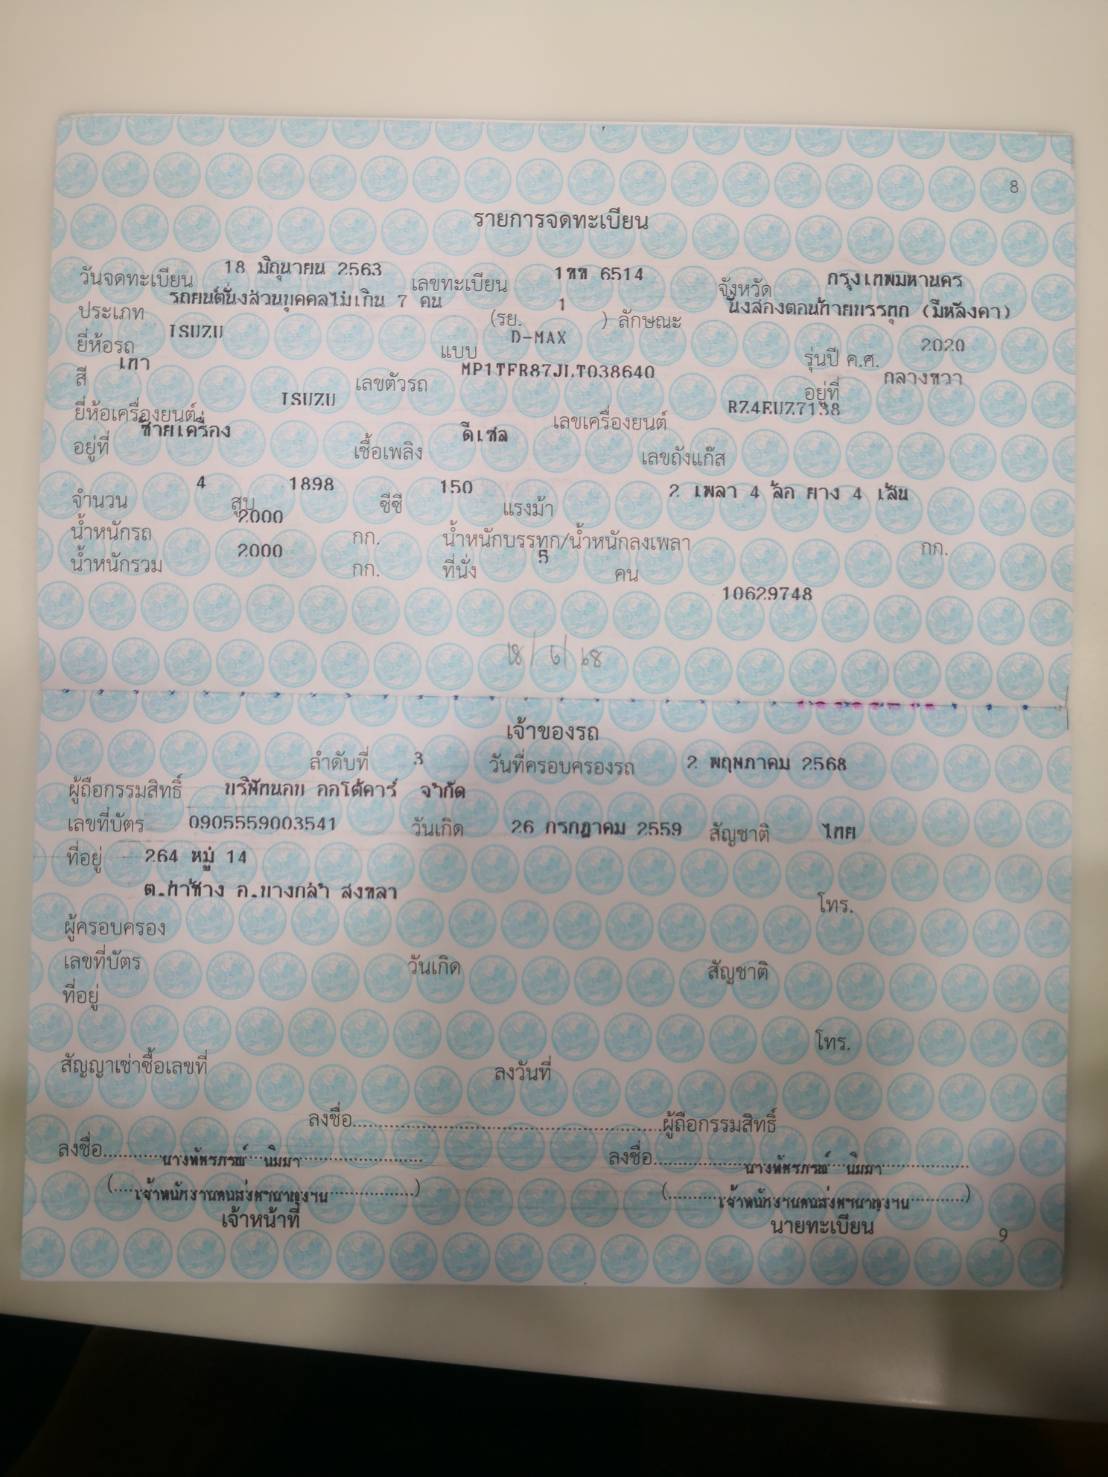 8
รายการจดทะเบียน
วันจดทะเบียน 18 มิถุนายน 2563 เลขทะเบียน 1ฒฒ 6514 จังหวัด กรุงเทพมหานคร
ประเภท รถยนต์นั่งส่วนบุคคลไม่เกิน 7 คน (รย. 1 ) ลักษณะ นั่งสองตอนท้ายบรรทุก (มีหลังคา)
ยี่ห้อรถ ISUZU แบบ D-MAX รุ่นปี ค.ศ. 2020
สี เทา เลขตัวรถ MP1TFR87JLT038640 อยู่ที่ กลางขวา
ยี่ห้อเครื่องยนต์ ISUZU เลขเครื่องยนต์ RZ4EUZ7138
อยู่ที่ ซ้ายเครื่อง เชื้อเพลิง ดีเซล เลขถังแก๊ส
จำนวน 4 สูบ 1898 ซีซี 150 แรงม้า 2 เพลา 4 ล้อ ยาง 4 เส้น
น้ำหนักรถ 2000 กก. น้ำหนักบรรทุก/น้ำหนักลงเพลา กก.
น้ำหนักรวม 2000 กก. ที่นั่ง 5 คน
10629748
18/6/68
เจ้าของรถ
ลำดับที่ 3 วันที่ครอบครองรถ 2 พฤษภาคม 2568
ผู้ถือกรรมสิทธิ์ บริษัทนอบ ออโต้คาร์ จำกัด
เลขที่บัตร 0905559003541 วันเกิด 26 กรกฎาคม 2559 สัญชาติ ไทย
ที่อยู่ 264 หมู่ 14
ต.ท่าช้าง อ.บางกล่ำ สงขลา โทร.
ผู้ครอบครอง
เลขที่บัตร วันเกิด สัญชาติ
ที่อยู่
โทร.
สัญญาเช่าซื้อเลขที่ ลงวันที่
ลงชื่อ ผู้ถือกรรมสิทธิ์
ลงชื่อ นางพัชรภรณ์ นิมมา ลงชื่อ นางพัชรภรณ์ นิมมา
(เจ้าพนักงานขนส่งชำนาญงาน) (เจ้าพนักงานขนส่งชำนาญงาน)
เจ้าหน้าที่ นายทะเบียน
9